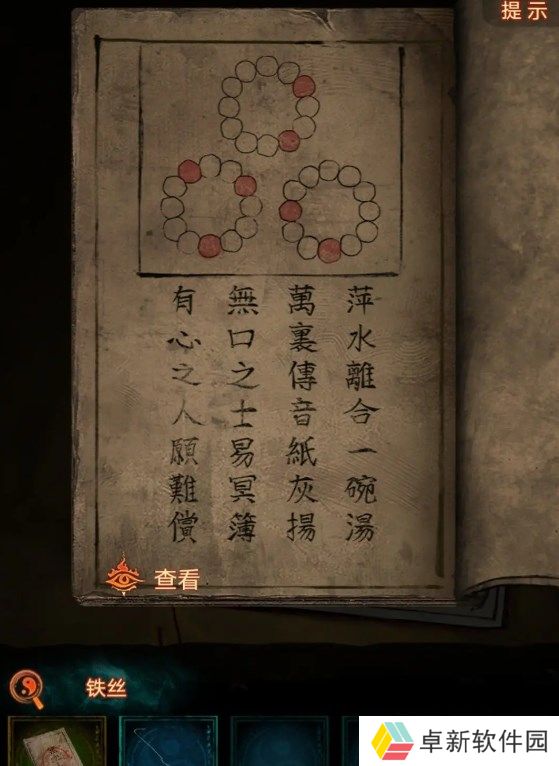 提示
萍水離合一碗湯
萬裏傳音紙灰揚
無口之士易冥簿
有心之人願難償
查看
铁丝
卓新软件园